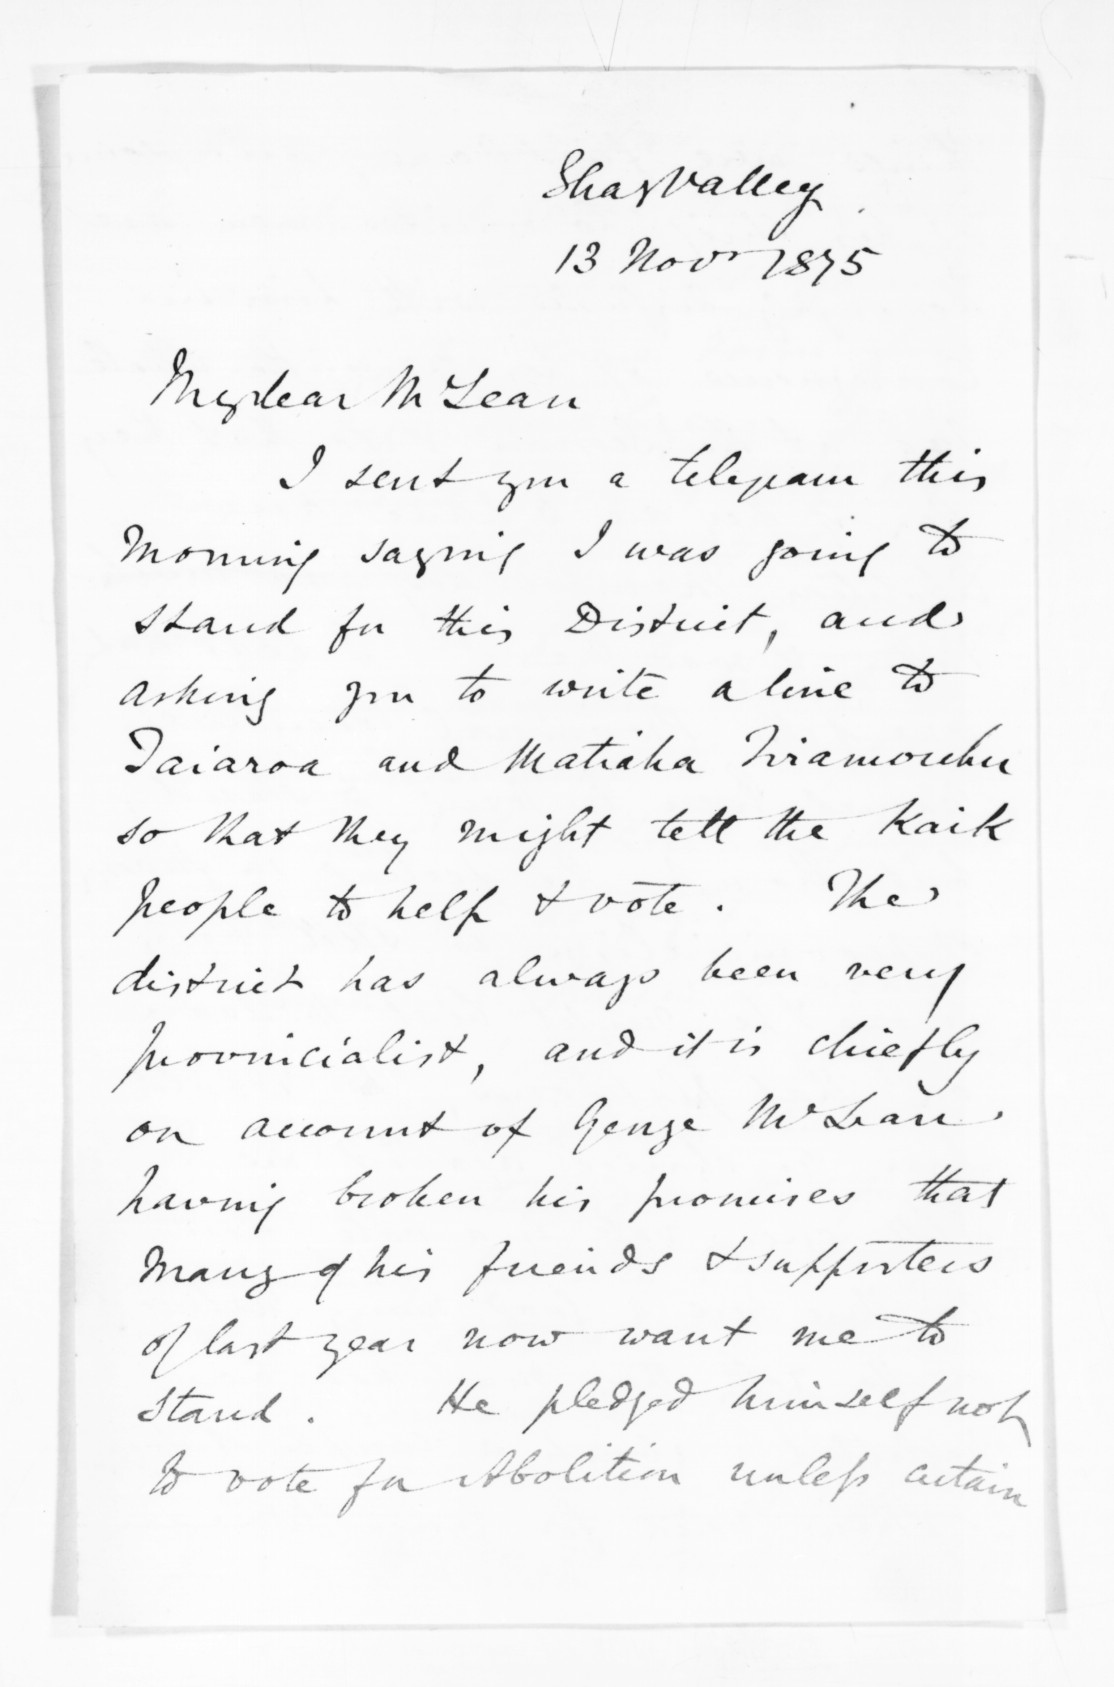 Shag Valley
13 Novr 1875
My dear McLean
I sent you a telegram this
morning saying I was going to
stand for this District, and
asking you to write a line to
Taiaroa and Matiaha Tiramorehu
so that they might tell the Kaik
people to help & vote. The
district has always been very
provincialist, and it is chiefly
on account of George McLean
having broken his promises that
many of his friends & supporters
of last year now want me to
stand. He pledged himself not
to vote for Abolition unless certain